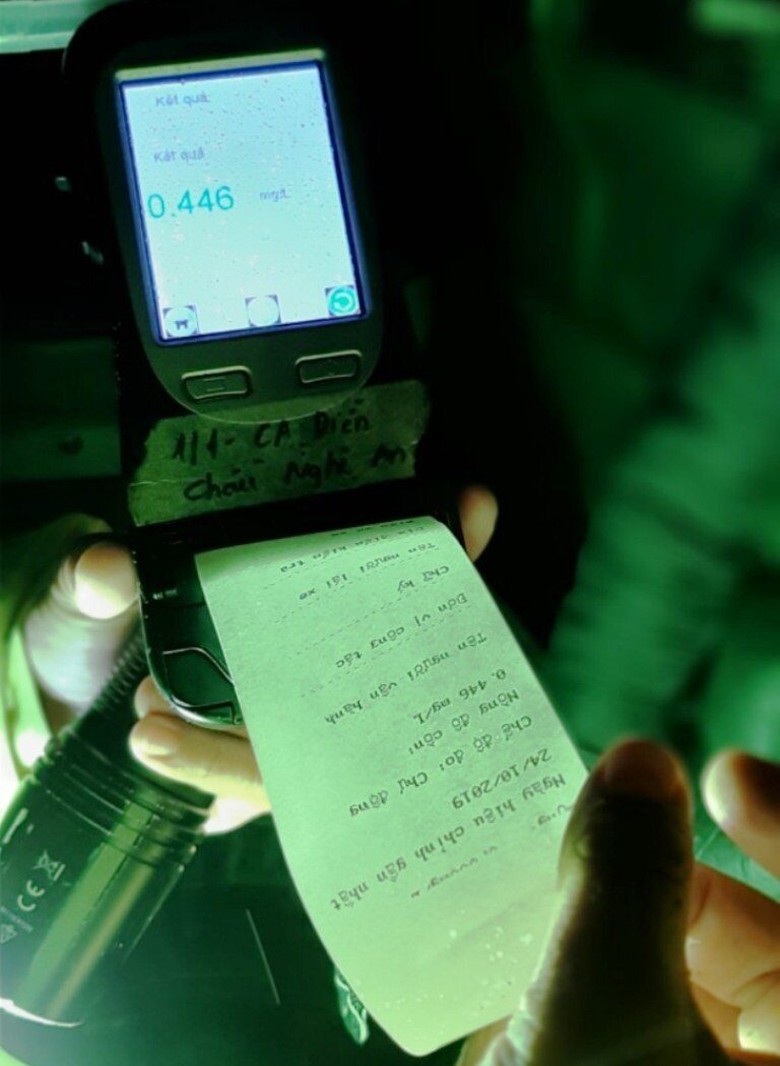 Kết quả:
Kết quả
0.446 mg/L
1/1- CA Diễn
Châu Nghệ An
Ngày hiệu chỉnh gần nhất
24/10/2019
Chế độ đo: Chủ động
Nồng độ cồn:
0.446 mg/L
Tên người vận hành
Đơn vị công tác
Chữ ký
Tên người lái xe
Địa điểm kiểm tra
CE